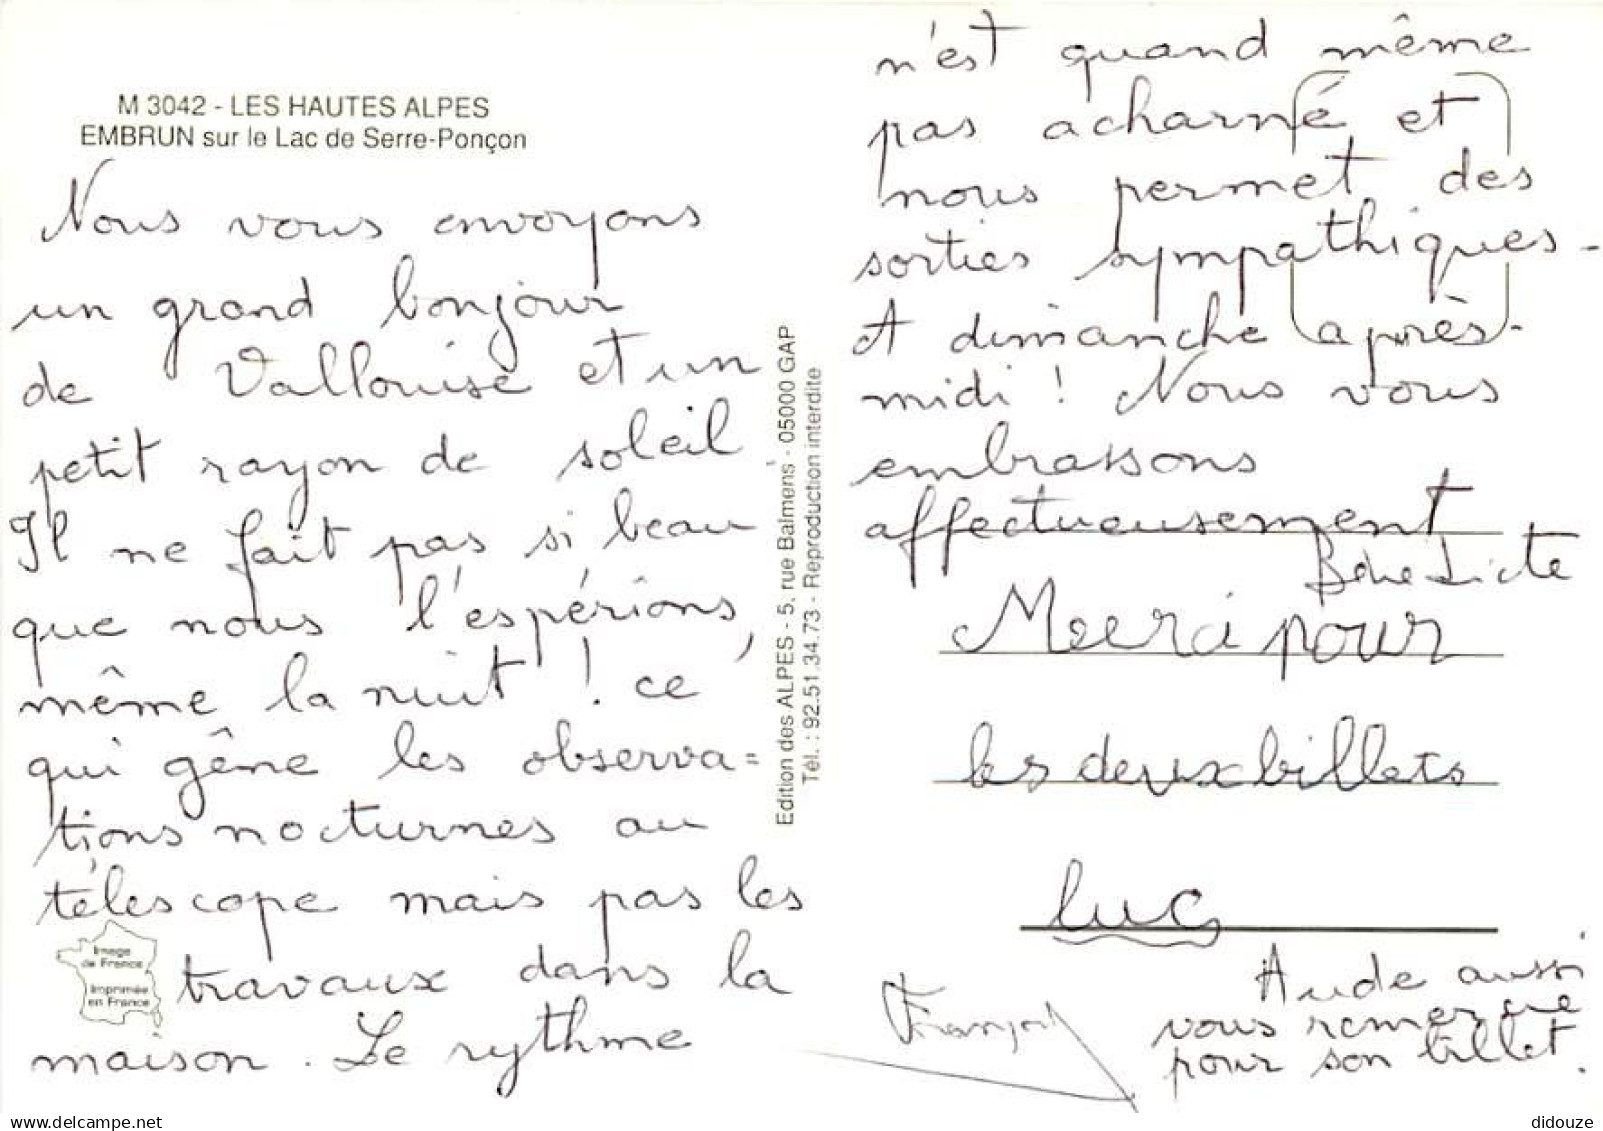 M 3042 - LES HAUTES ALPES
EMBRUN sur le Lac de Serre-Ponçon
Nous vous envoyons
un grand bonjour
de Vallouise et un
petit rayon de soleil.
Il ne fait pas si beau
que nous l'espérions,
même la nuit ! ce
qui gêne les observa=
tions nocturnes au
télescope mais pas les
travaux dans la
maison. Le rythme
Image
de France
Imprimée
en France
Edition des ALPES - 5, rue Balmens - 05000 GAP
Tél. : 92.51.34.73 - Reproduction interdite
n'est quand même
pas acharné et
nous permet des
sorties sympathiques -
A dimanche après-
midi ! Nous vous
embrassons
affectueusement
Bénédicte
Meerci pour
les deux billets
luc
François
Aude aussi
vous remercie
pour son billet.
didouze